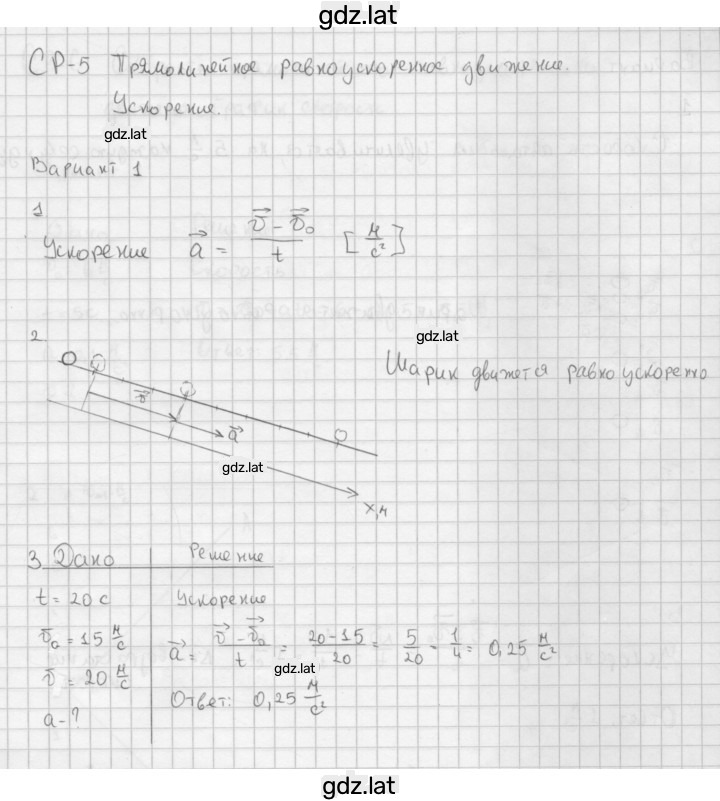 gdz.lat
СР-5 Прямолинейное равноускоренное движение.
Ускорение.
gdz.lat
Вариант 1
1
Ускорение a⃗ = (v⃗ - v⃗₀)/t [м/с²]
2
gdz.lat
Шарик движется равноускоренно
v⃗
a⃗
gdz.lat
x,м
3 Дано
Решение
t = 20 с
Ускорение
v₀ = 15 м/с
a⃗ = (v⃗ - v⃗₀)/t = (20-15)/20 = 5/20 = 1/4 = 0,25 м/с²
gdz.lat
v = 20 м/с
Ответ: 0,25 м/с²
a - ?
gdz.lat